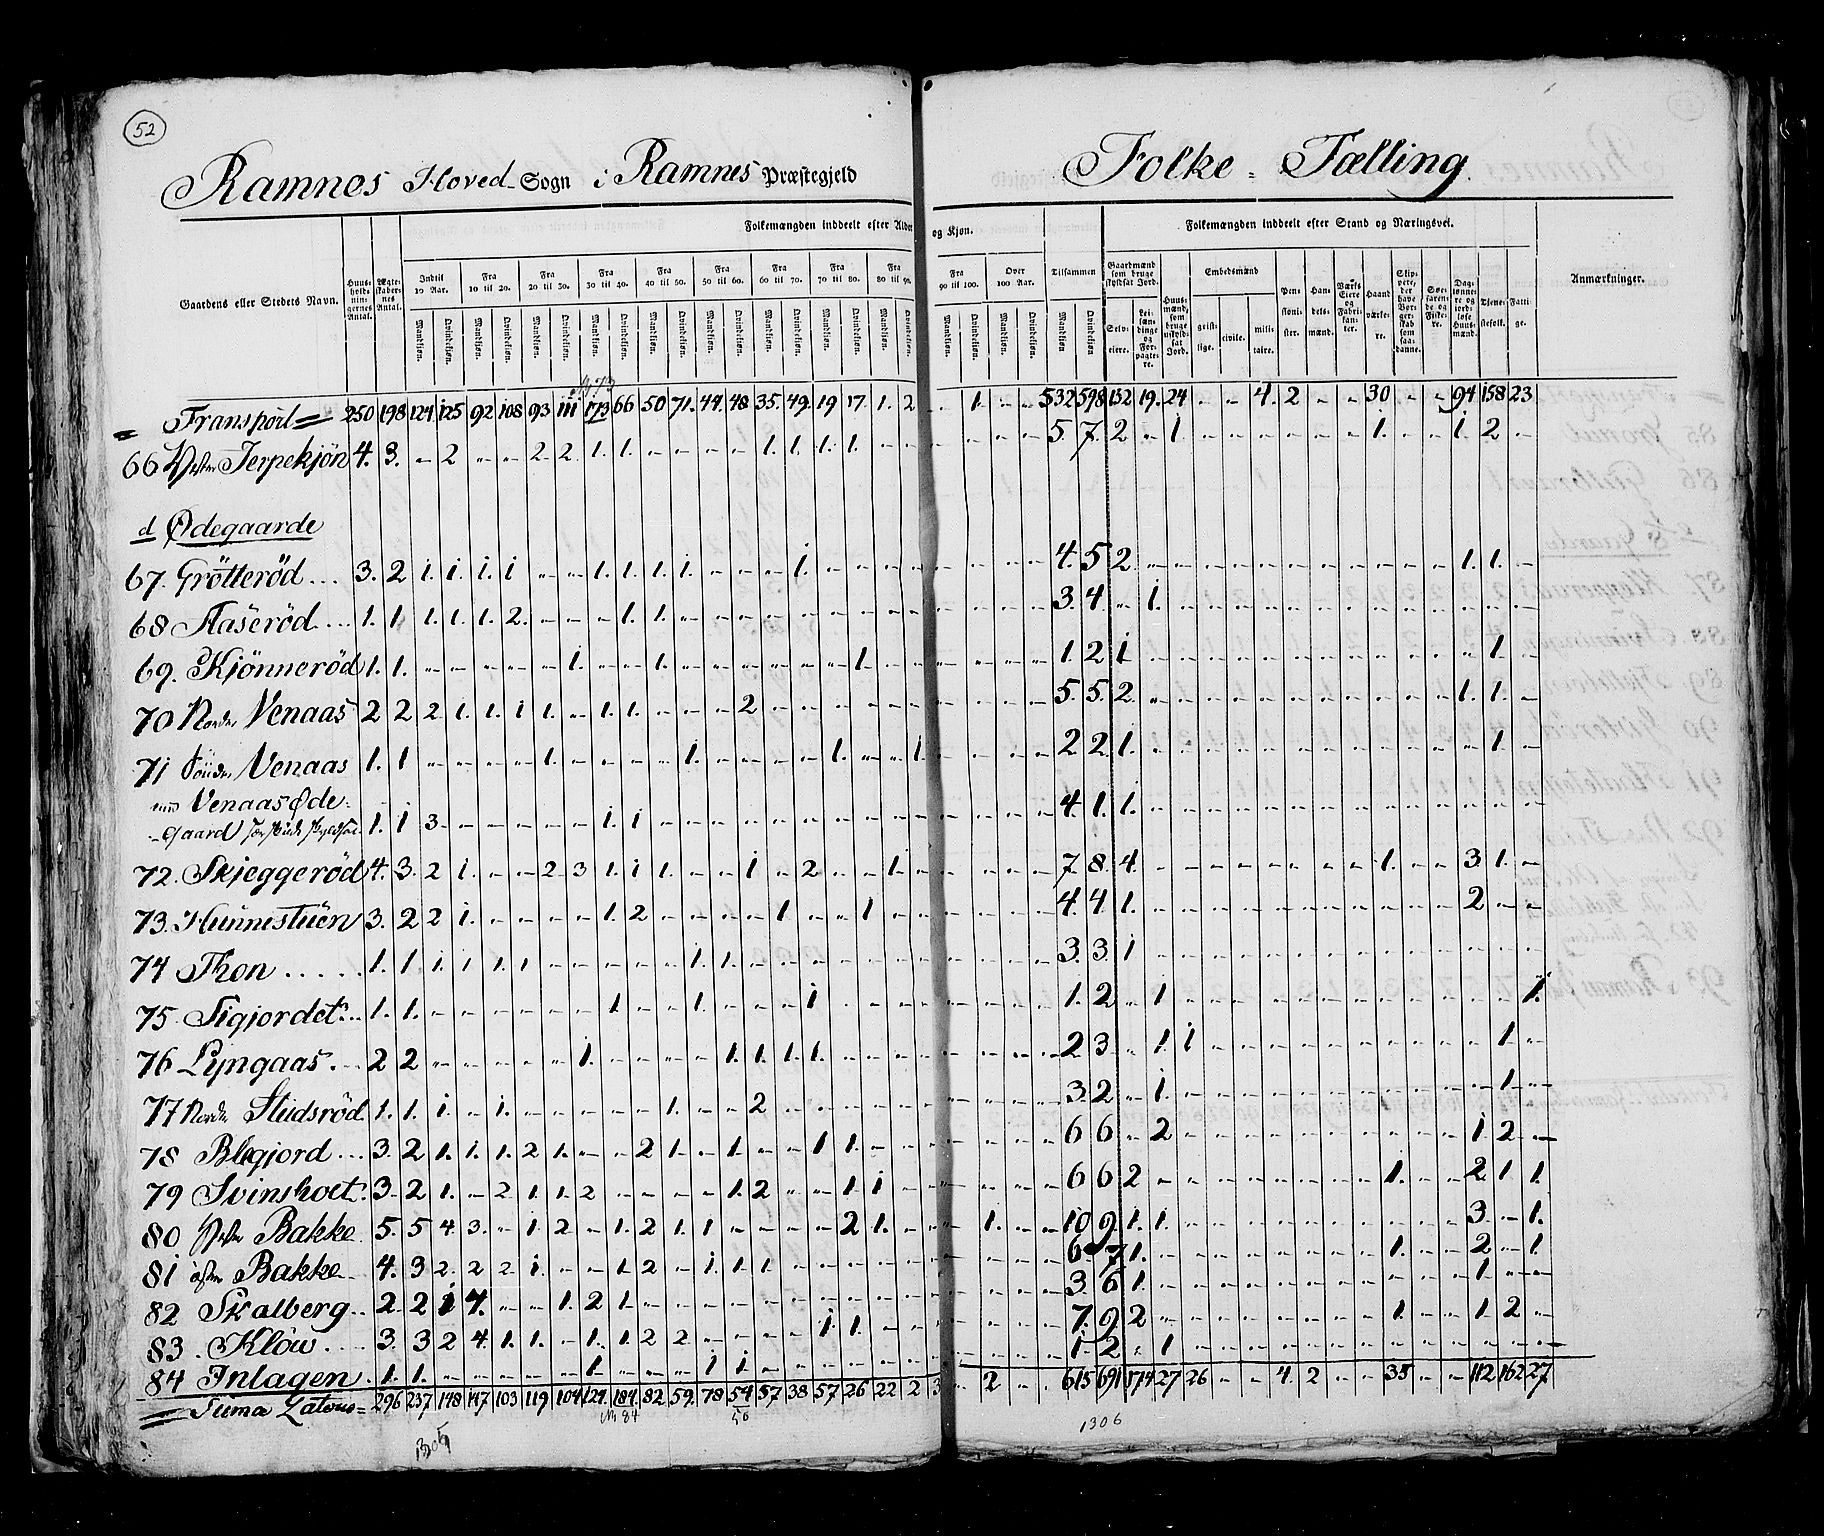 52
Ramnes Hoved-Sogn i Ramnes Præstegjeld Folke-Tælling.
Folkemængden inddeelt efter Alder og Kjøn. Folkemængden inddeelt efter Stand og Næringsvei.
Gaardens eller Stedets Navn. Huusholdningernes Antal. Ægteskabernes Antal. Indtil 10 Aar. Fra 10 til 20. Fra 20 til 30. Fra 30 til 40. Fra 40 til 50. Fra 50 til 60. Fra 60 til 70. Fra 70 til 80. Fra 80 til 90. Fra 90 til 100. Over 100 Aar. Tilsammen Gaardmænd som bruge skyldsat Jord. Embedsmænd Anmærkninger.
Mandkjøn. Qvindekjøn. Mandkjøn. Qvindekjøn. Mandkjøn. Qvindekjøn. Mandkjøn. Qvindekjøn. Mandkjøn. Qvindekjøn. Mandkjøn. Qvindekjøn. Mandkjøn. Qvindekjøn. Mandkjøn. Qvindekjøn. Mandkjøn. Qvindekjøn. Mandkjøn. Qvindekjøn. Mandkjøn. Qvindekjøn. Mandkjøn. Qvindekjøn. Selveiere. Leilændinge og Forpagtere. Huusmænd, som bruge uskyldsat Jord. geistlige. civile. militaire. Pensionister. Handelsmænd. Værks Eiere og Fabrikanter. Haandværkere. Søefarende og Fiskere. Tjenestefolk. Fattige.
Transport 250 198 121 125 92 108 93 111 173 66 50 71. 44. 48 35. 49. 19 17. 1. 2 - 1. - - 532 598 152 19. 24 - - 4. 2 - - 30 - - 94 158 23
66 Vester Jerpekjön 4. 3. - 2 - - 2 2. 1. 1. - - - - 1. 1. 1. 1. 5. 7. 2 - 1. - - - - - - 1. - - 1. 2 -
d Ødegaarde
67. Grötteröd ... 3. 2 1. 1. 1. 1 - - 1. 1. 1. 1. - - - 1. 4. 5 2. 1. 1. -
68 Aaseröd ... 1. 1. 1. 1. 1. 2. - - - 1. 1. 3. 4 - 1.
69. Kjönneröd 1. 1. - - - - - 1. - - 1. - - - - - - 1. 1. 2 1 1. -
70 Norder Venaas 2 2 2 1. 1. 1 1. - 1. 1. - - - 2 5. 5. 2. 1. 1. -
71 Sönder Venaas 1. 1 - - - - 1. - - - - 1. - - - - 1. - - 1. 2 2. 1. 1. -
Venaas Øde-
Gaard 1. 1 3. - - - - - 1. 1 4. 1. 1.
72. Skjeggeröd 4. 3. 2 1. - - 2 3 1. 1 1. - - 1 - 2 - - 1. 7. 8. 4. 1. - - 3. 1. -
73. Hunnestuen 3. 2 2 1. - - - - 1. 2 - - - - 1 - - 1 4. 4 1. 2 - -
74 Thon ..... 1. 1 1. 1 1. 1 - - - - - 1. 1. 3. 3. 1
75 Sigjordet ... 1. 1. - - - - - - - 1 - - 1. - - - 1 1. 2 - 1 1.
76 Lyngaas ... 2 2 - - - - - - 1. - - - - 1. 1. 1. 1. 2 3 - 1. 1 1. -
77 Norder Studsröd 1. 1. 1. - 1. - - - - - 1. - - 2 3. 2 - 1. 1. -
78 Blegjord ... 3. 2 1. 1. 1. 2 1. - - 2 1. - 1. - - 1 1. 6 6. - 2 1 2 -
79 Svinsholt. 3. 2 1. - 2 1. 1. 2 - - - - 1. 2 - - 1. 1 6 6 2 1. - - 2 1 1.
80 Vester Bakke 5. 5 4 3. - 1. 2 - 1. 2 1. 1 - - - - 2 1. 1. 10 9. 1. 1. 3. - 1.
81 öster Bakke 4. 3 2. 2 2 1. - - 1. 2 - 1. 1 1 6 7 1. 1. - - 2 - 1.
82 Skalberg .. 2. 2 1 4. - - 1. 2 1. 3. 6 1. 1. - -
83. Klöu ... 3. 3 2 4. 1. 1. - 1. 1. 2 2 - - - - 1 1. 7. 9. 2 1. - - 1 2 -
84 Inlagen . 1. 1. - - - - - 1. - - - 1 1 1. 2 - 1
Suma Lateris = 296 237 148 147 103 119 104 121. 184. 82 59. 78 54 57 38 57 26 22 2 3 - 2 - - 615 691 174 27 26 - - 4. 2 - - 35 - - 112 162 27
№ 84 50
1305 1306